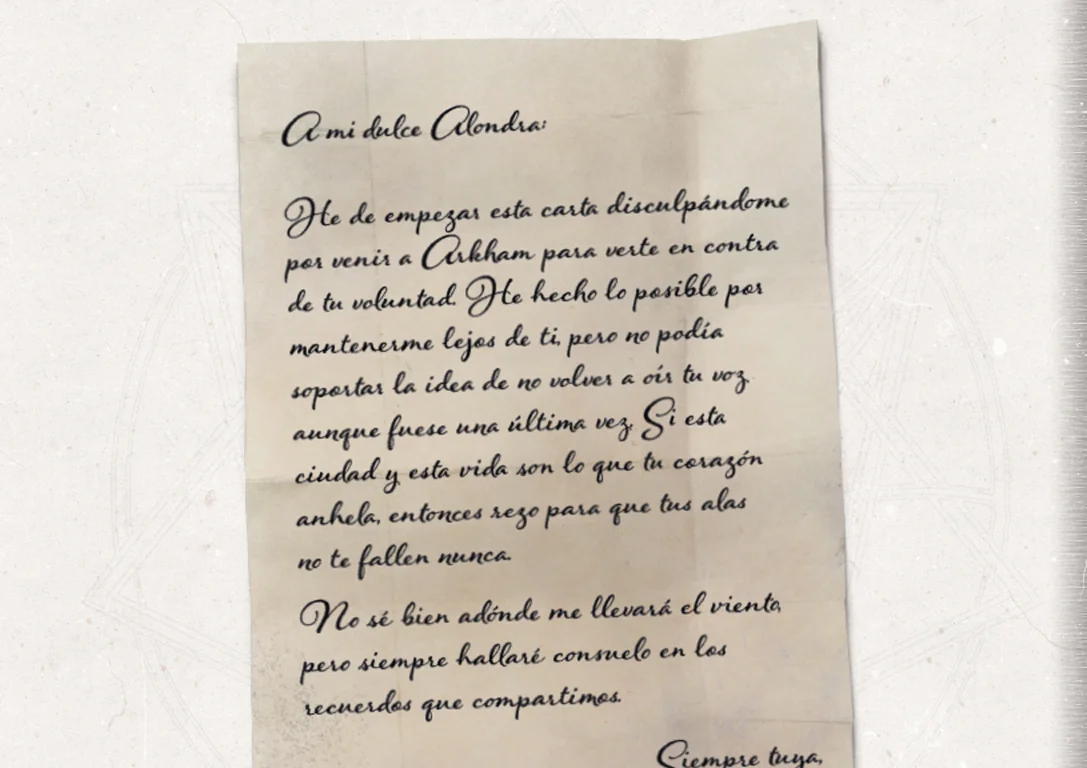 A mi dulce Alondra:
He de empezar esta carta disculpándome
por venir a Arkham para verte en contra
de tu voluntad. He hecho lo posible por
mantenerme lejos de ti, pero no podía
soportar la idea de no volver a oír tu voz,
aunque fuese una última vez. Si esta
ciudad y esta vida son lo que tu corazón
anhela, entonces rezo para que tus alas
no te fallen nunca.
No sé bien adónde me llevará el viento,
pero siempre hallaré consuelo en los
recuerdos que compartimos.
Siempre tuya,